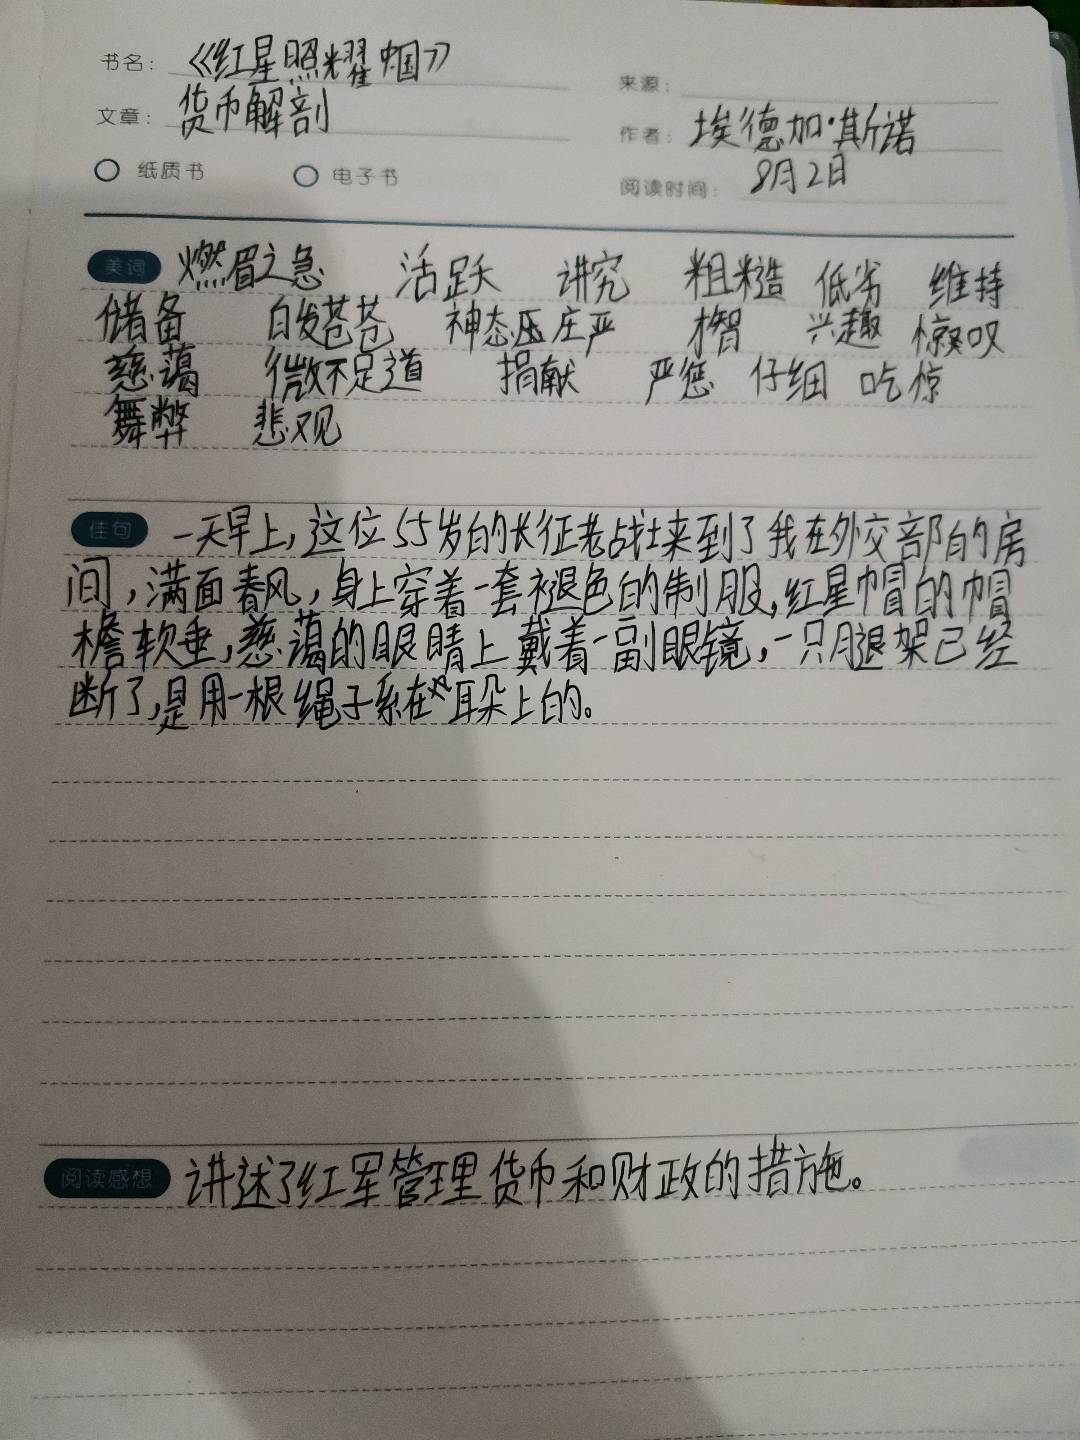 书名：《红星照耀中国》
来源：
文章：货币解剖
作者：埃德加·斯诺
纸质书 电子书
阅读时间：8月2日
美词 燃眉之急 活跃 讲究 粗糙 低劣 维持
储备 白发苍苍 神态 庄严 才智 兴趣 惊叹
慈蔼 微不足道 捐献 严惩 仔细 吃惊
舞弊 悲观
佳句 一天早上,这位55岁的长征老战士来到了我在外交部的房
间,满面春风,身上穿着一套褪色的制服,红星帽的帽
檐软垂,慈蔼的眼睛上戴着一副眼镜,一只腿架已经
断了,是用一根绳子系在耳朵上的。
阅读感想 讲述了红军管理货币和财政的措施。